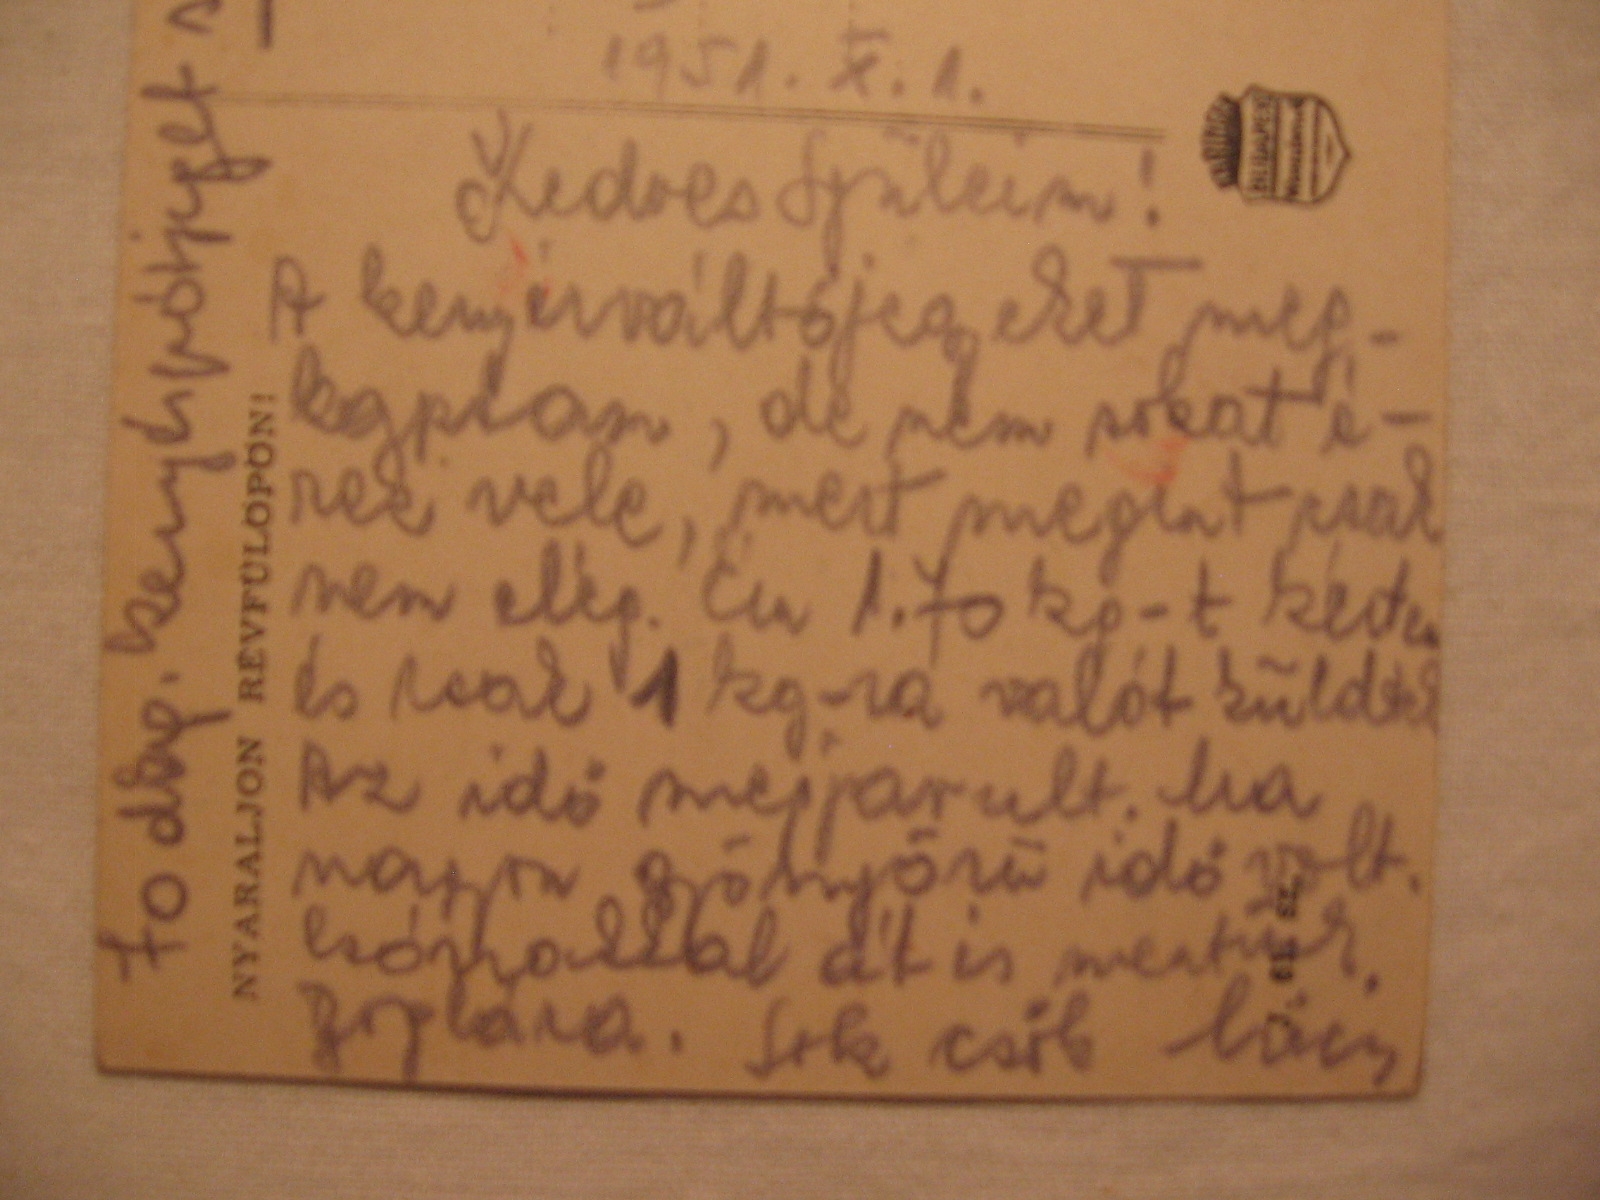 1951. X. 1.
Kedves Szüleim!
A kenyérváltójegyeket meg-
kaptam, de nem sokat é-
rek vele, mert megint csak
nem elég. Én 1.70 kg-t kértem
és csak 1 kg-ra valót küldtek
Az idő megjavult. Ma
nagyon gyönyörű idő volt.
Csónakkal át is mentünk
Sok csók Laci
70 dkg. kenyérváltójegyet
NYARALJON RÉVFÜLÖPÖN!
BUDAPEST